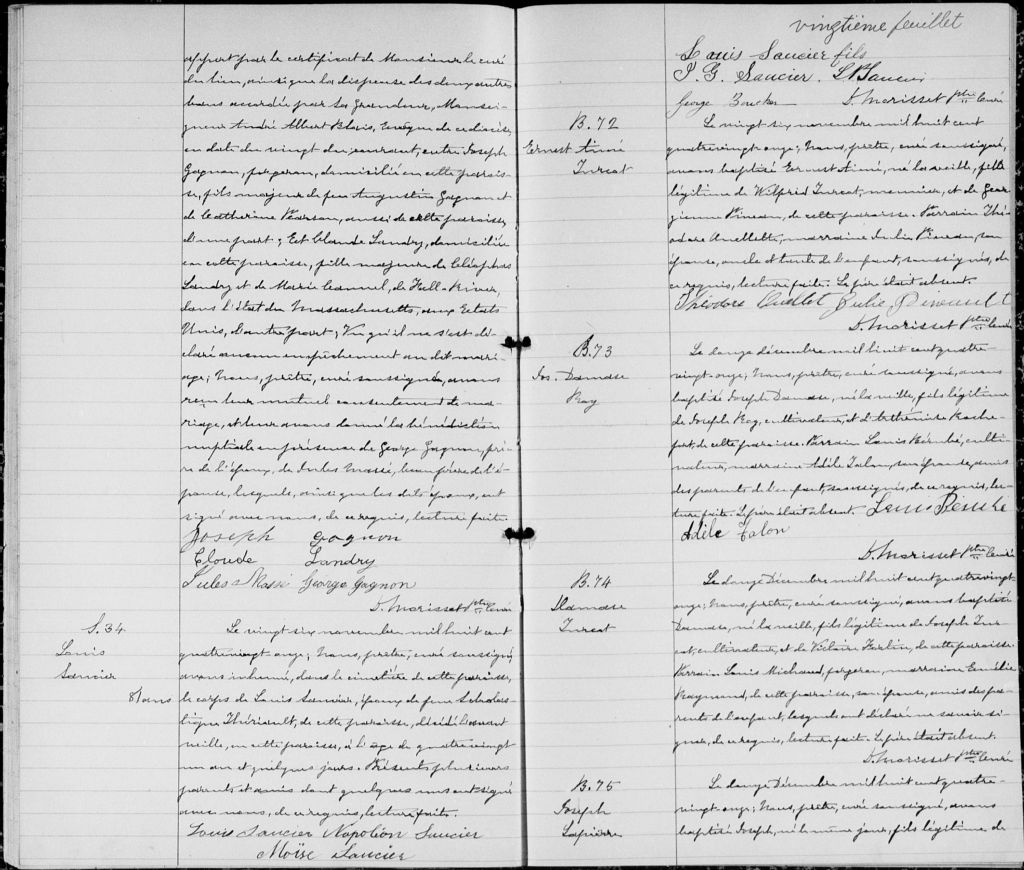 appert par le certificat de Monsieur le curé
du lieu, ainsi que la dispense des deux autres
bans accordée par Sa Grandeur, Monsei-
gneur André Albert Blais, Evêque de ce diocèse,
en date du vingt du courant, entre Joseph
Gagnon, forgeron, domicilié en cette parois-
se, fils majeur de feu Augustin Gagnon et
de Catherine Pearson, aussi de cette paroisse,
d'une part; Et Claude Landry, domiciliée
en cette paroisse, fille majeure de Cléophas
Landry et de Marie Cannel, de Fall-River,
dans l'état du Massachusetts, aux Etats
Unis, d'autre part; Vu qu'il ne s'est dé-
claré aucun empêchement au dit mari-
age; Nous, prêtre, curé soussigné, avons
reçu leur mutuel consentement de ma-
riage, et leur avons donné la bénédiction
nuptiale en présence de George Gagnon, frè-
re de l'époux, de Jules Massé, beau-frère de l'é-
pouse, lesquels, ainsi que les dits époux, ont
signé avec nous, de ce requis, lecture faite.
Joseph Gagnon
Cloude Landry
Jules Massé George Gagnon
D. Morisset Ptre Curé
S. 34
Louis
Saucier
81 ans
Le vingt six novembre mil huit cent
quatrevingt onze; Nous, prêtre, curé soussigné,
avons inhumé, dans le cimetière de cette paroisse,
le corps de Louis Saucier, époux de feue Scholas-
tique Thériault, de cette paroisse, décédé l'avant
veille, en cette paroisse, à l'âge de quatrevingt
un an et quelques jours. Présents plusieurs
parents et amis dont quelques uns ont signé
avec nous, de ce requis, lecture faite.
Louis Saucier Napoléon Saucier
Moïse Saucier
vingtième feuillet
Louis Saucier fils
J. G. Saucier.
George Boucher D. Morisset Ptre Curé
B. 72
Ernest Aimé
Turcot
Le vingt six novembre mil huit cent
quatrevingt onze; Nous, prêtre, curé soussigné,
avons baptisé Ernest Aimé, né la veille, fils
légitime de Wilfrid Turcot, menuisier, et de Geor-
gienne Pineau, de cette paroisse. Parrain Thé-
odore Ouellette, marraine Julie Pineau, son
épouse, oncle et tante de l'enfant, soussignés, de
ce requis, lecture faite. Le père était absent.
Théodore Ouellet Julie
D. Morisset Ptre Curé
B. 73
Jos. Damase
Roy
Le douze décembre mil huit cent quatre-
vingt-onze; Nous, prêtre, curé soussigné, avons
baptisé Joseph Damase, né la veille, fils légitime
de Joseph Roy, cultivateur, et d'Arthémise Roche-
fort, de cette paroisse. Parrain Louis Bérubé, culti-
vateur, marraine Adèle Talon, son épouse, amis
des parents de l'enfant, soussignés, de ce requis, lec-
ture faite. Le père était absent. Louis Bérubé
Adèle Talon
D. Morisset Ptre Curé
B. 74
Damase
Turcot
Le douze Décembre mil huit cent quatrevingt
onze; Nous, prêtre, curé soussigné, avons baptisé
Damase, né la veille, fils légitime de Joseph Tur-
cot, cultivateur, et de Victoire, de cette paroisse.
Parrain Louis Michaud, forgeron, marraine Emélie
Raymond, de cette paroisse, son épouse, amis des pa-
rents de l'enfant, lesquels ont déclaré ne savoir si-
gner, de ce requis, lecture faite. Le père était absent.
D. Morisset Ptre Curé
B. 75
Joseph
Lapierre
Le douze Décembre mil huit cent quatre-
vingt-onze; Nous, prêtre, curé soussigné, avons
baptisé Joseph, né le même jour, fils légitime de